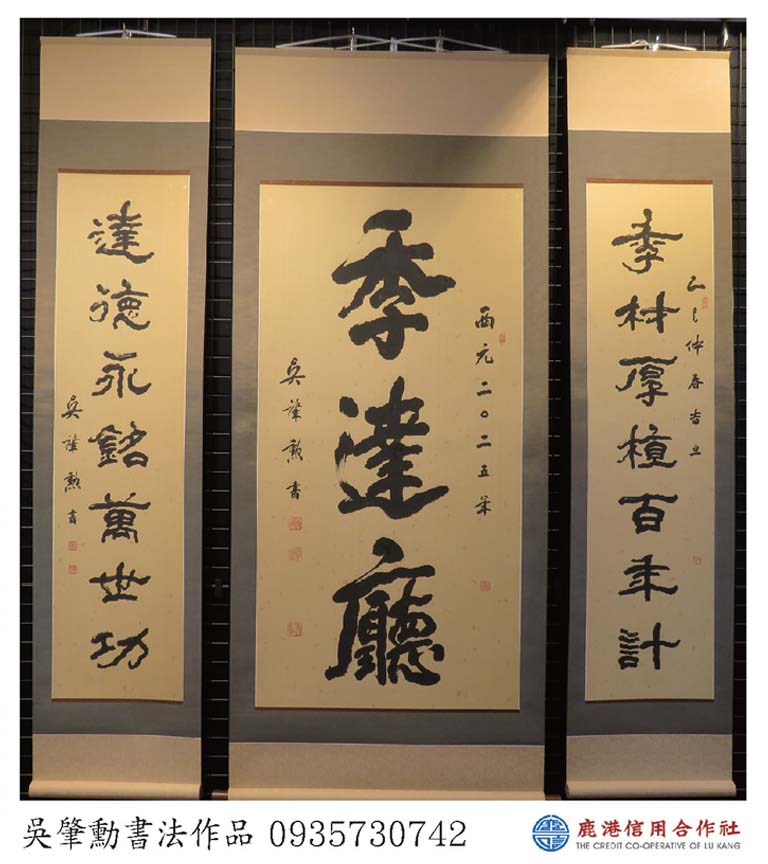 季材厚植百年計
乙巳仲春吉立
季達廳
西元二〇二五年
吳肇勲書
達德永銘萬世功
吳肇勲書
吳肇勳書法作品 0935730742
鹿港信用合作社
THE CREDIT CO-OPERATIVE OF LU KANG